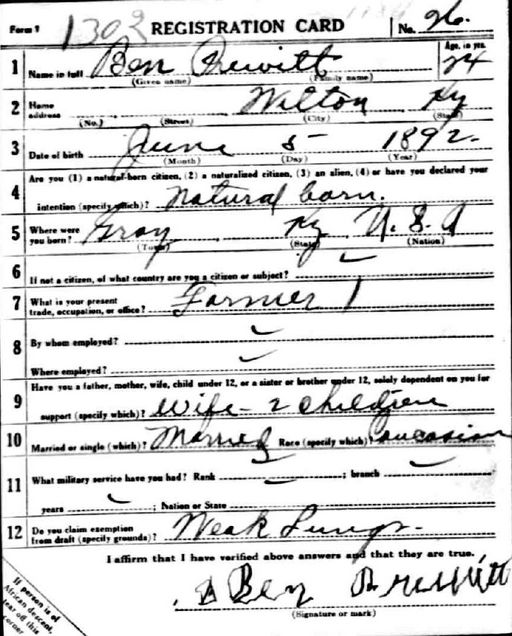 Form 1 1303 REGISTRATION CARD No. 26.
1 Name in full Ben Prewitt Age, in yrs. 24
(Given name) (Family name)
2 Home address Wilton Ky
(No.) (Street) (City) (State)
3 Date of birth June 5 1892.
(Month) (Day) (Year)
4 Are you (1) a natural-born citizen, (2) a naturalized citizen, (3) an alien, (4) or have you declared your
intention (specify which)? Natural born.
5 Where were you born? Gray Ky U.S.A
(Town) (State) (Nation)
6 If not a citizen, of what country are you a citizen or subject?
7 What is your present trade, occupation, or office? Farmer 1
8 By whom employed?
Where employed?
9 Have you a father, mother, wife, child under 12, or a sister or brother under 12, solely dependent on you for
support (specify which)? Wife - 2 children
10 Married or single (which)? Married Race (specify which)? Caucasian
11 What military service have you had? Rank ; branch
years ; Nation or State
12 Do you claim exemption from draft (specify grounds)? Weak Lungs -
I affirm that I have verified above answers and that they are true.
Ben Prewitt
(Signature or mark)
If person is of
African descent,
tear off this
corner